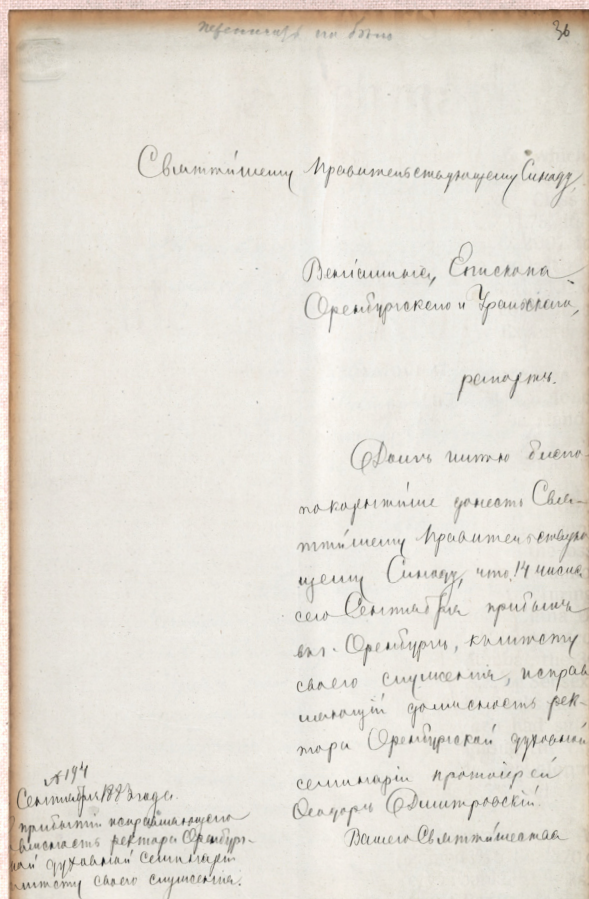 36
Святѣйшему Правительствующему Синоду,
Веніамина, Епископа
Оренбургскаго и Уральскаго,
рапортъ.
Долгъ имѣю благо-
покорнѣйше донесть Свя-
тѣйшему Правительствую-
щему Синоду, что 14 числа
сего Сентября прибылъ
въ г. Оренбургъ, къ мѣсту
своего служенія, исправ
ляющій должность рек-
тора Оренбургской духовной
семинаріи протоіерей
Ѳеодоръ Дмитровскій
Вашего Святѣйшества
№ 194
Сентября 1883 года.
прибытіи исправляющаго
должность ректора Оренбург-
ской духовной семинаріи
къ мѣсту своего служенія.